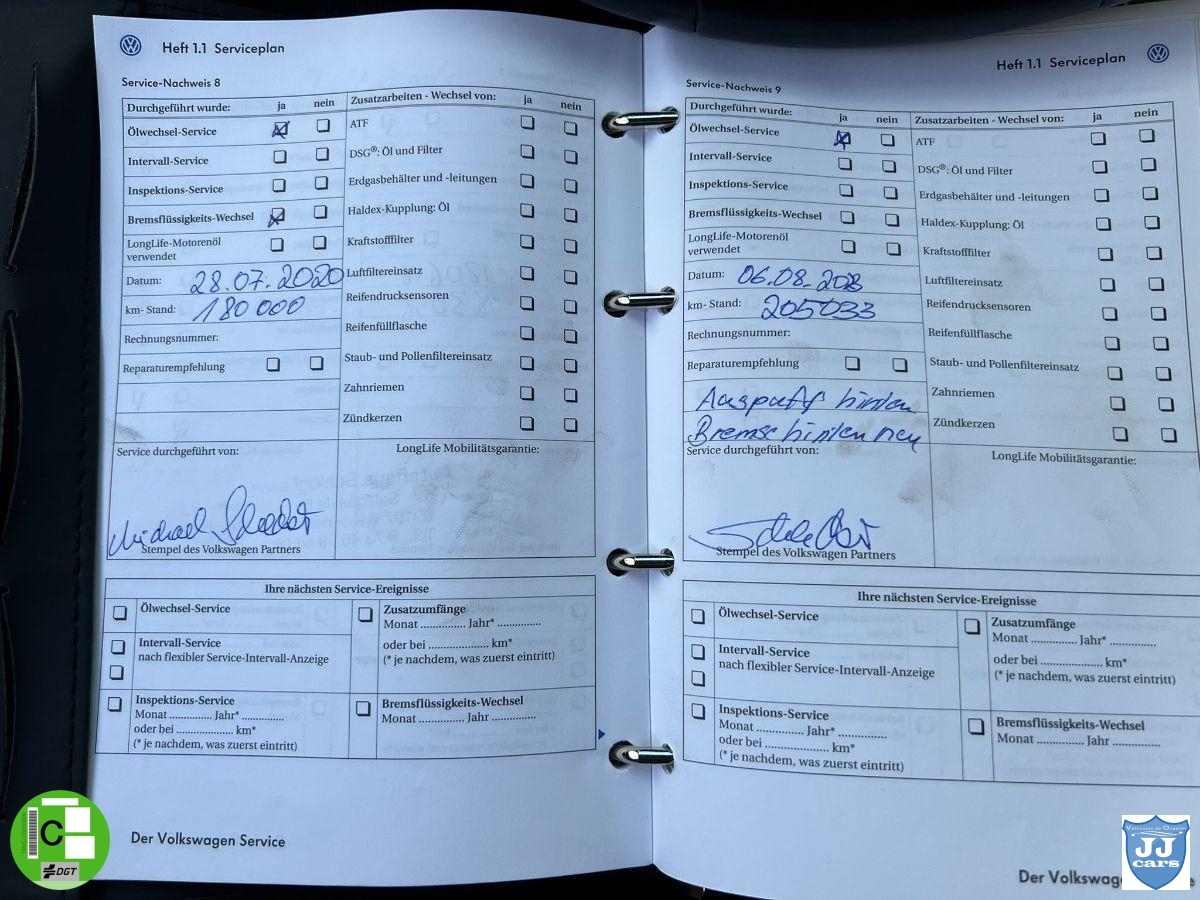 Heft 1.1 Serviceplan
Service-Nachweis 8
Durchgeführt wurde: ja nein
Ölwechsel-Service
Intervall-Service
Inspektions-Service
Bremsflüssigkeits-Wechsel
LongLife-Motorenöl
verwendet
Datum: 28.07.2020
km- Stand: 180 000
Rechnungsnummer:
Reparaturempfehlung
Zusatzarbeiten - Wechsel von: ja nein
ATF
DSG®: Öl und Filter
Erdgasbehälter und -leitungen
Haldex-Kupplung: Öl
Kraftstofffilter
Luftfiltereinsatz
Reifendrucksensoren
Reifenfüllflasche
Staub- und Pollenfiltereinsatz
Zahnriemen
Zündkerzen
Service durchgeführt von:
Michael
Stempel des Volkswagen Partners
LongLife Mobilitätsgarantie:
Ihre nächsten Service-Ereignisse
Ölwechsel-Service
Intervall-Service
nach flexibler Service-Intervall-Anzeige
Inspektions-Service
Monat ............... Jahr* ...............
oder bei ....................... km*
(* je nachdem, was zuerst eintritt)
Zusatzumfänge
Monat ............... Jahr* ...............
oder bei ....................... km*
(* je nachdem, was zuerst eintritt)
Bremsflüssigkeits-Wechsel
Monat ............... Jahr ...............
Der Volkswagen Service
Heft 1.1 Serviceplan
Service-Nachweis 9
Durchgeführt wurde: ja nein
Ölwechsel-Service
Intervall-Service
Inspektions-Service
Bremsflüssigkeits-Wechsel
LongLife-Motorenöl
verwendet
Datum: 06.08.
km- Stand: 205033
Rechnungsnummer:
Reparaturempfehlung
Auspuff hinten
Bremse hinten neu
Zusatzarbeiten - Wechsel von: ja nein
ATF
DSG®: Öl und Filter
Erdgasbehälter und -leitungen
Haldex-Kupplung: Öl
Kraftstofffilter
Luftfiltereinsatz
Reifendrucksensoren
Reifenfüllflasche
Staub- und Pollenfiltereinsatz
Zahnriemen
Zündkerzen
Service durchgeführt von:
Stempel des Volkswagen Partners
LongLife Mobilitätsgarantie:
Ihre nächsten Service-Ereignisse
Ölwechsel-Service
Intervall-Service
nach flexibler Service-Intervall-Anzeige
Inspektions-Service
Monat ............... Jahr* ...............
oder bei ....................... km*
(* je nachdem, was zuerst eintritt)
Zusatzumfänge
Monat ............... Jahr* ...............
oder bei ....................... km*
(* je nachdem, was zuerst eintritt)
Bremsflüssigkeits-Wechsel
Monat ............... Jahr ...............
Der Volkswag
C
DGT
JJ
cars